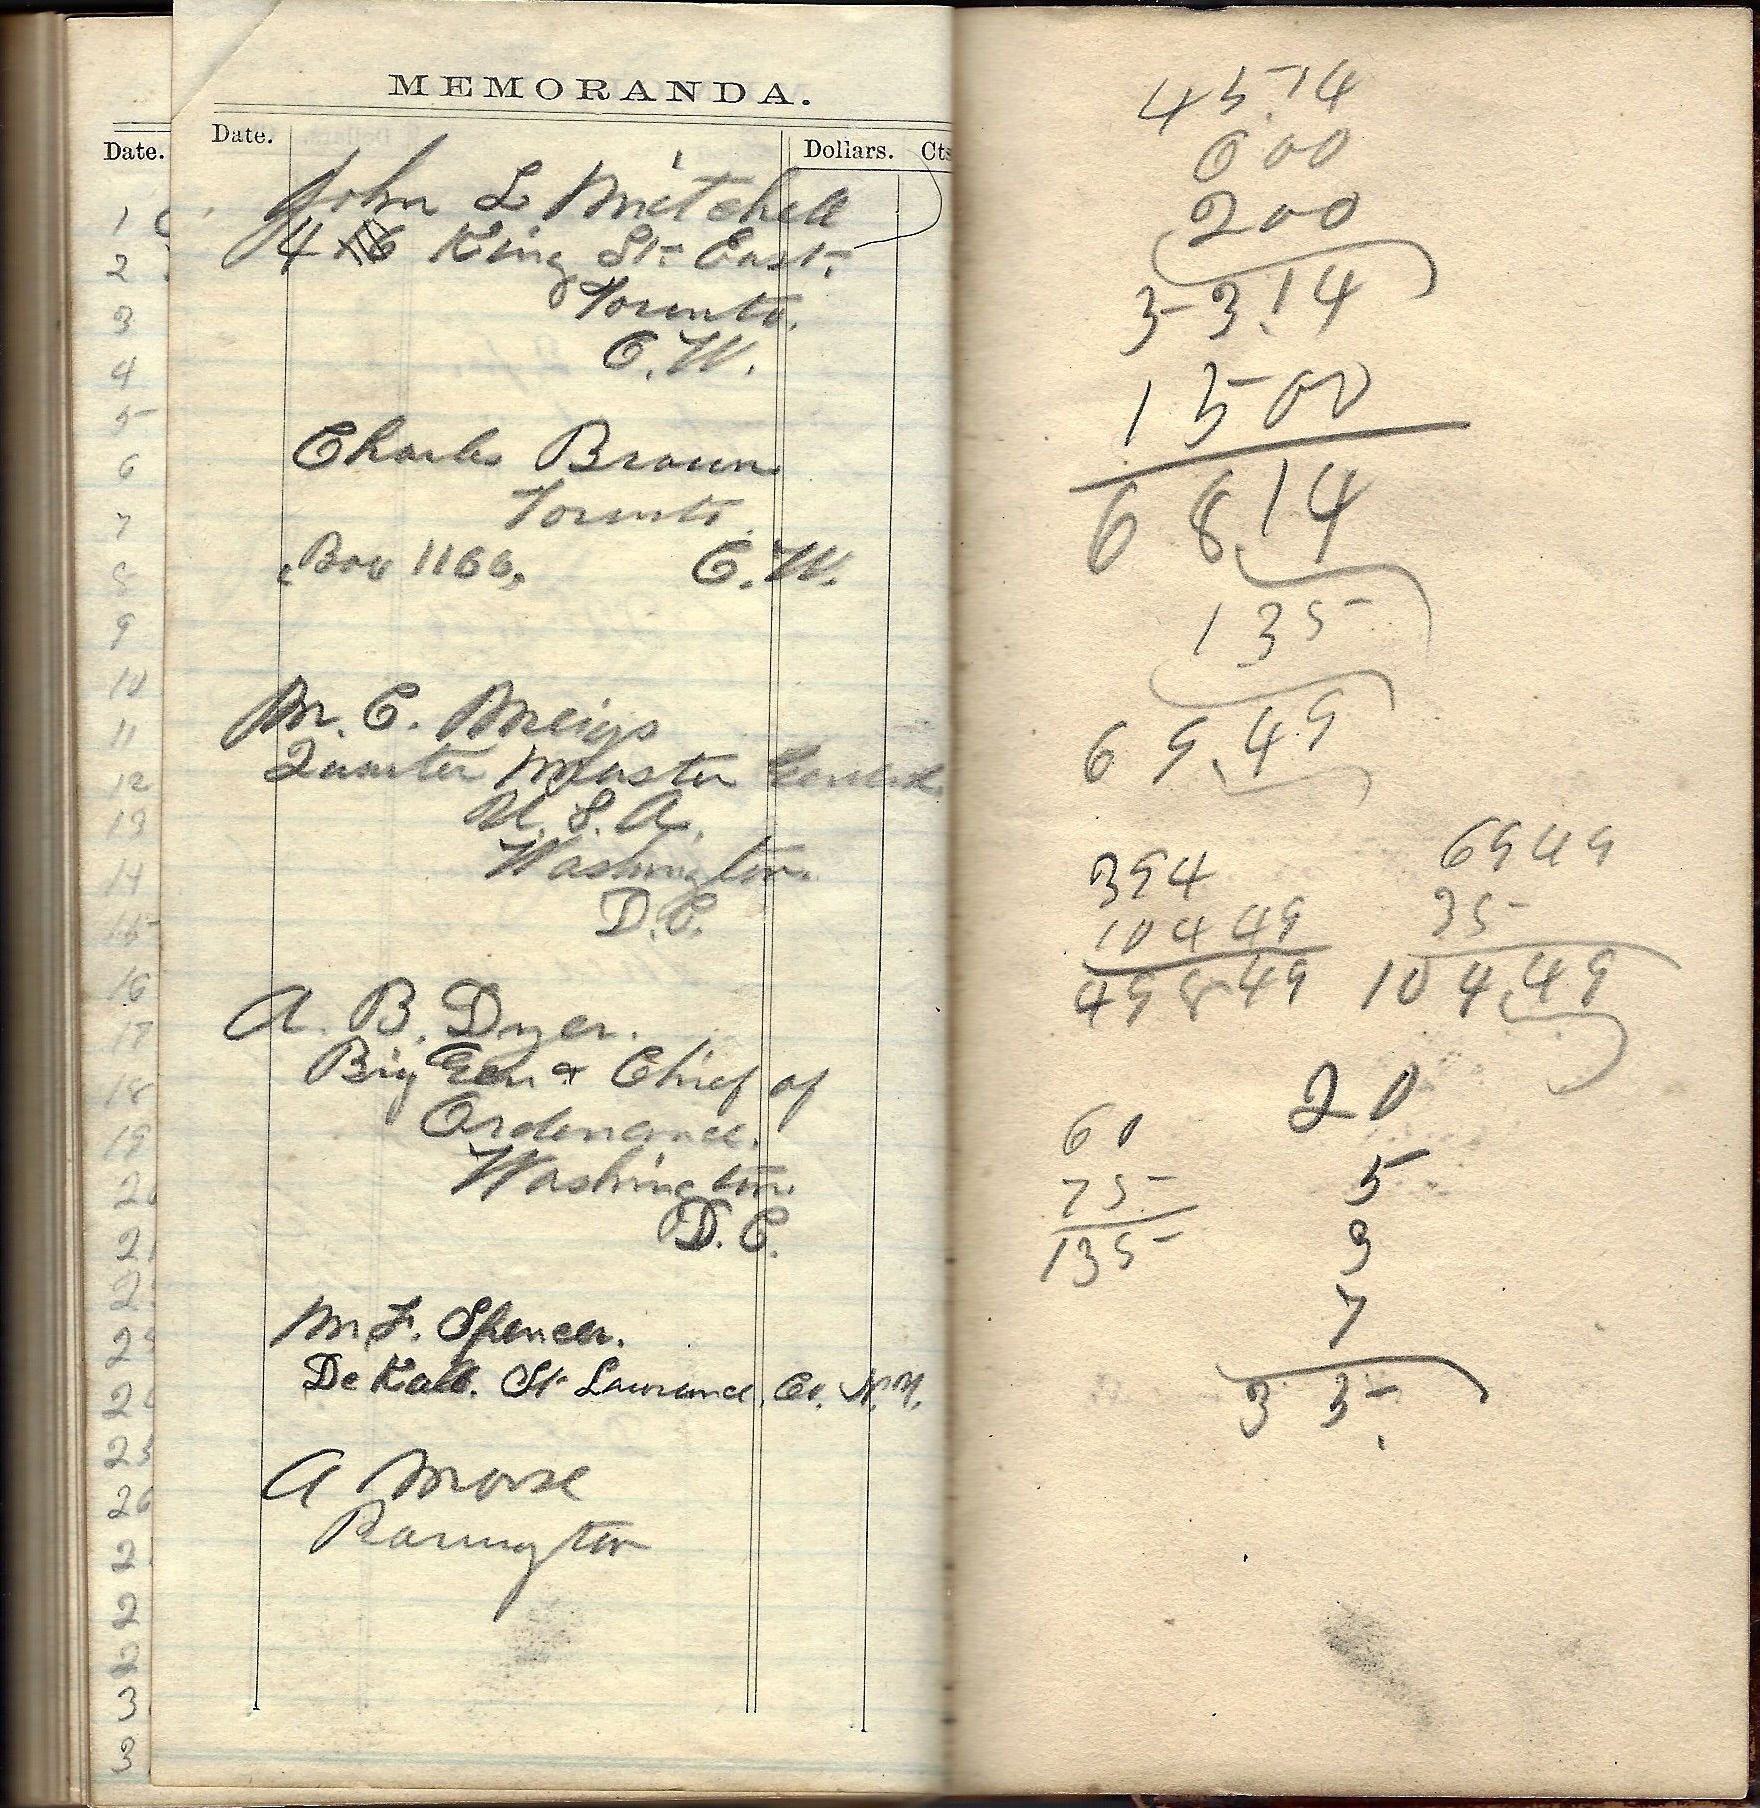 MEMORANDA.
Date.
Date.
Dollars. Cts
John L Mitchell
4 King St. East.
Toronto.
C.W.
Charles Brown
Toronto.
Box 1166, C.W.
M. C. Meigs
Quarter Master General
U. S. A.
Washington
D.C.
A. B. Dyer.
Brig Gen & Chief of
Ordenance.
Washington
D.C.
M F. Spencer.
De Kalb. St Lawrence, Co. N.Y.
A Morse
1
2
3
4
5
6
7
8
9
10
11
12
13
14
15
16
17
18
19
20
21
2
2
2
25
26
2
2
2
3
3
45.14
600
200
53.14
1500
68.14
135
69.49
394
10449
498.49
6949
35
104.49
60
75
135
20
5
3
7
35.